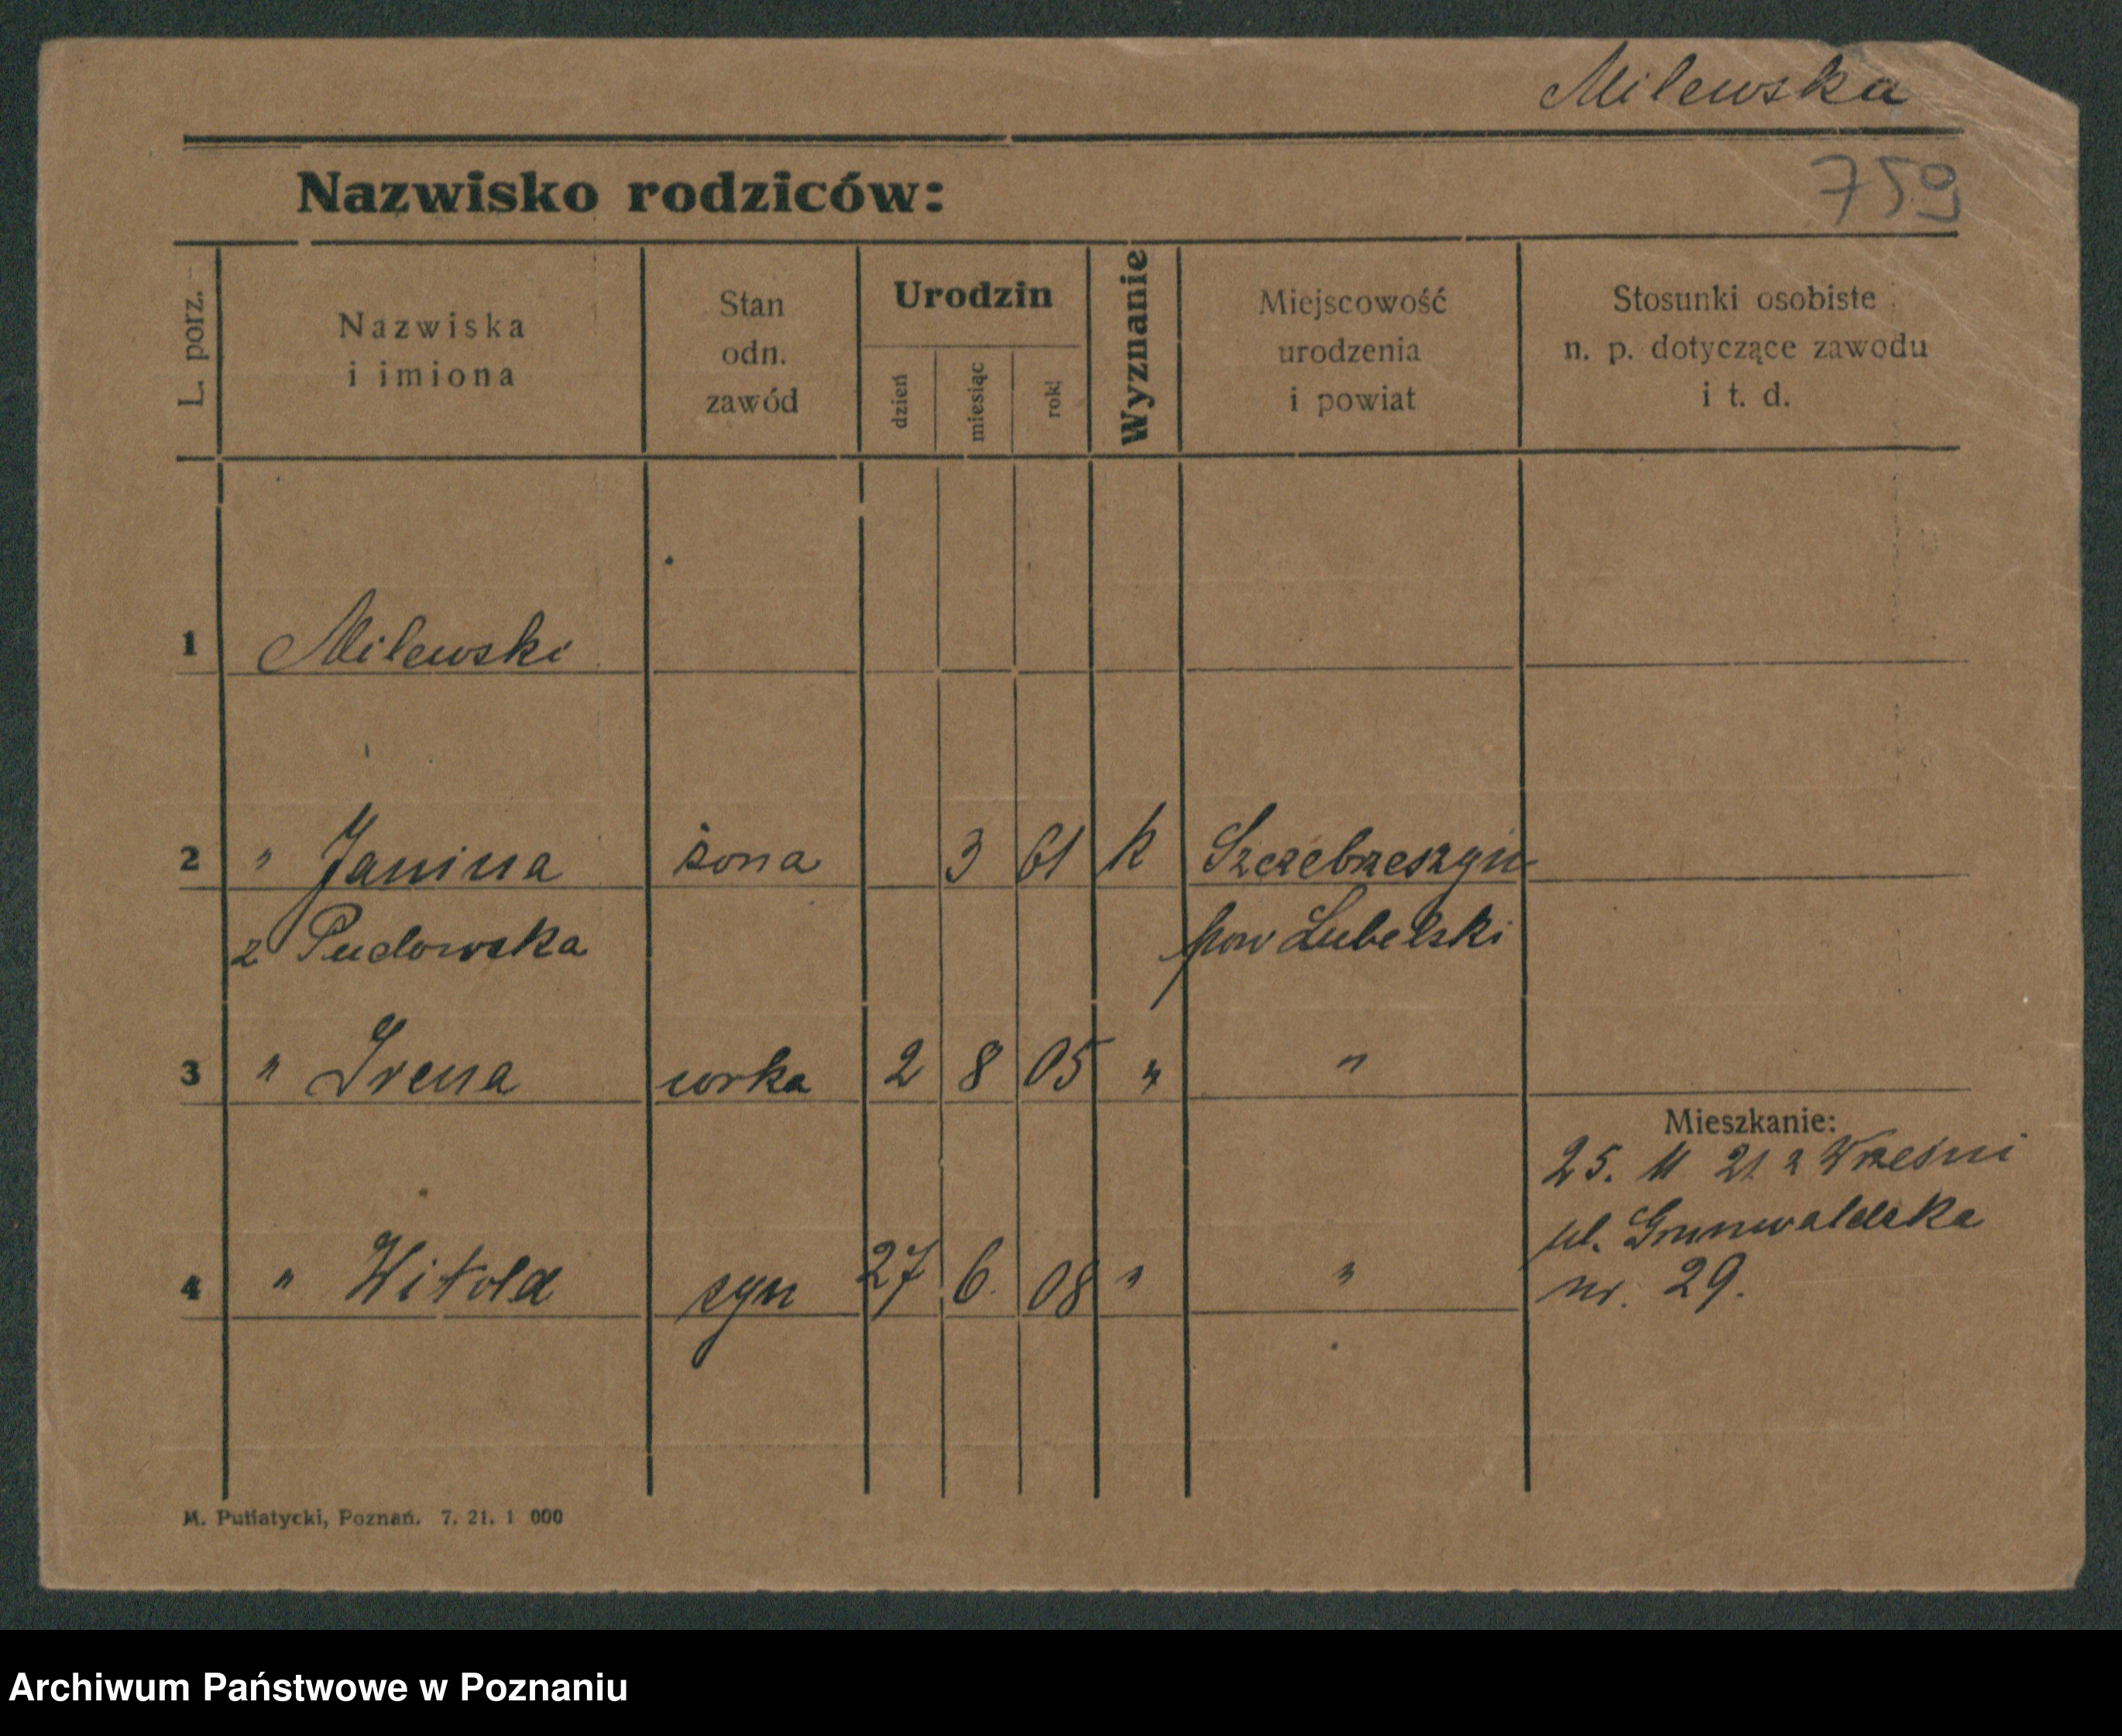 Milewska
759
Nazwisko rodziców:
L. porz.
Nazwiska
i imiona
Stan
odn.
zawód
Urodzin
dzień
miesiąc
rok
Wyznanie
Miejscowość
urodzenia
i powiat
Stosunki osobiste
n. p. dotyczące zawodu
i t. d.
1 Milewski
2 " Janina żona 3 61 k Szczebrzeszyn
z Pudowska pow Lubelski
3 " Irena corka 2 8 05 " "
Mieszkanie:
25. 11 21 z Wrześni
ul. Grunwaldzka
nr. 29.
4 " Witold syn 27 6. 08 " "
M. Putiatycki, Poznań. 7. 21. 1 000
Archiwum Państwowe w Poznaniu